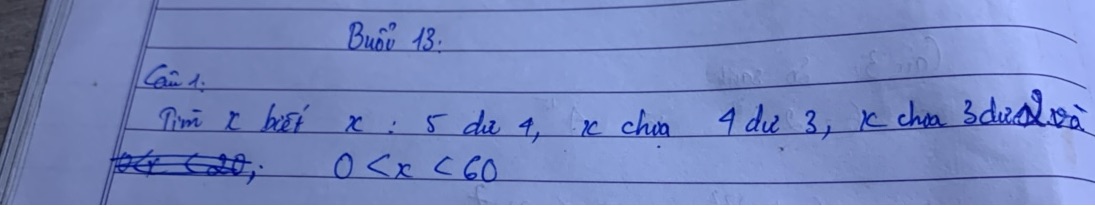 Buổi 13:
Câu 1:
Tìm x biết x : 5 dư 4, x chia 4 dư 3, x chia 3 dư 2 và
0<x<20; 0<x<60